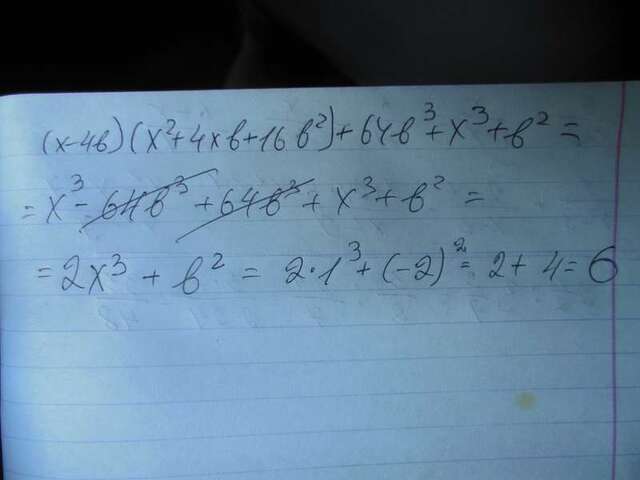 (x-4в)(x²+4xв+16в²)+64в³+x³+в²=
=x³-64в³+64в³+x³+в²=
=2x³+в²=2·1³+(-2)²=2+4=6